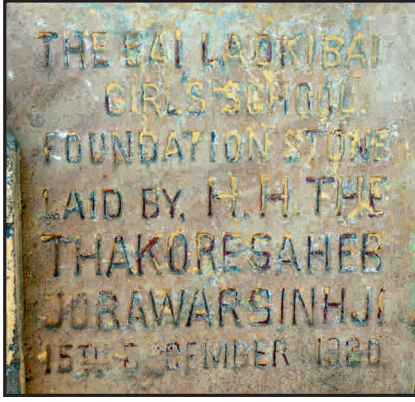 THE BAI LADKIBAI
GIRLS SCHOOL.
FOUNDATION STONE
LAID BY, H.H. THE
THAKORESAHEB
JORAWARSINHJI
15TH 1920